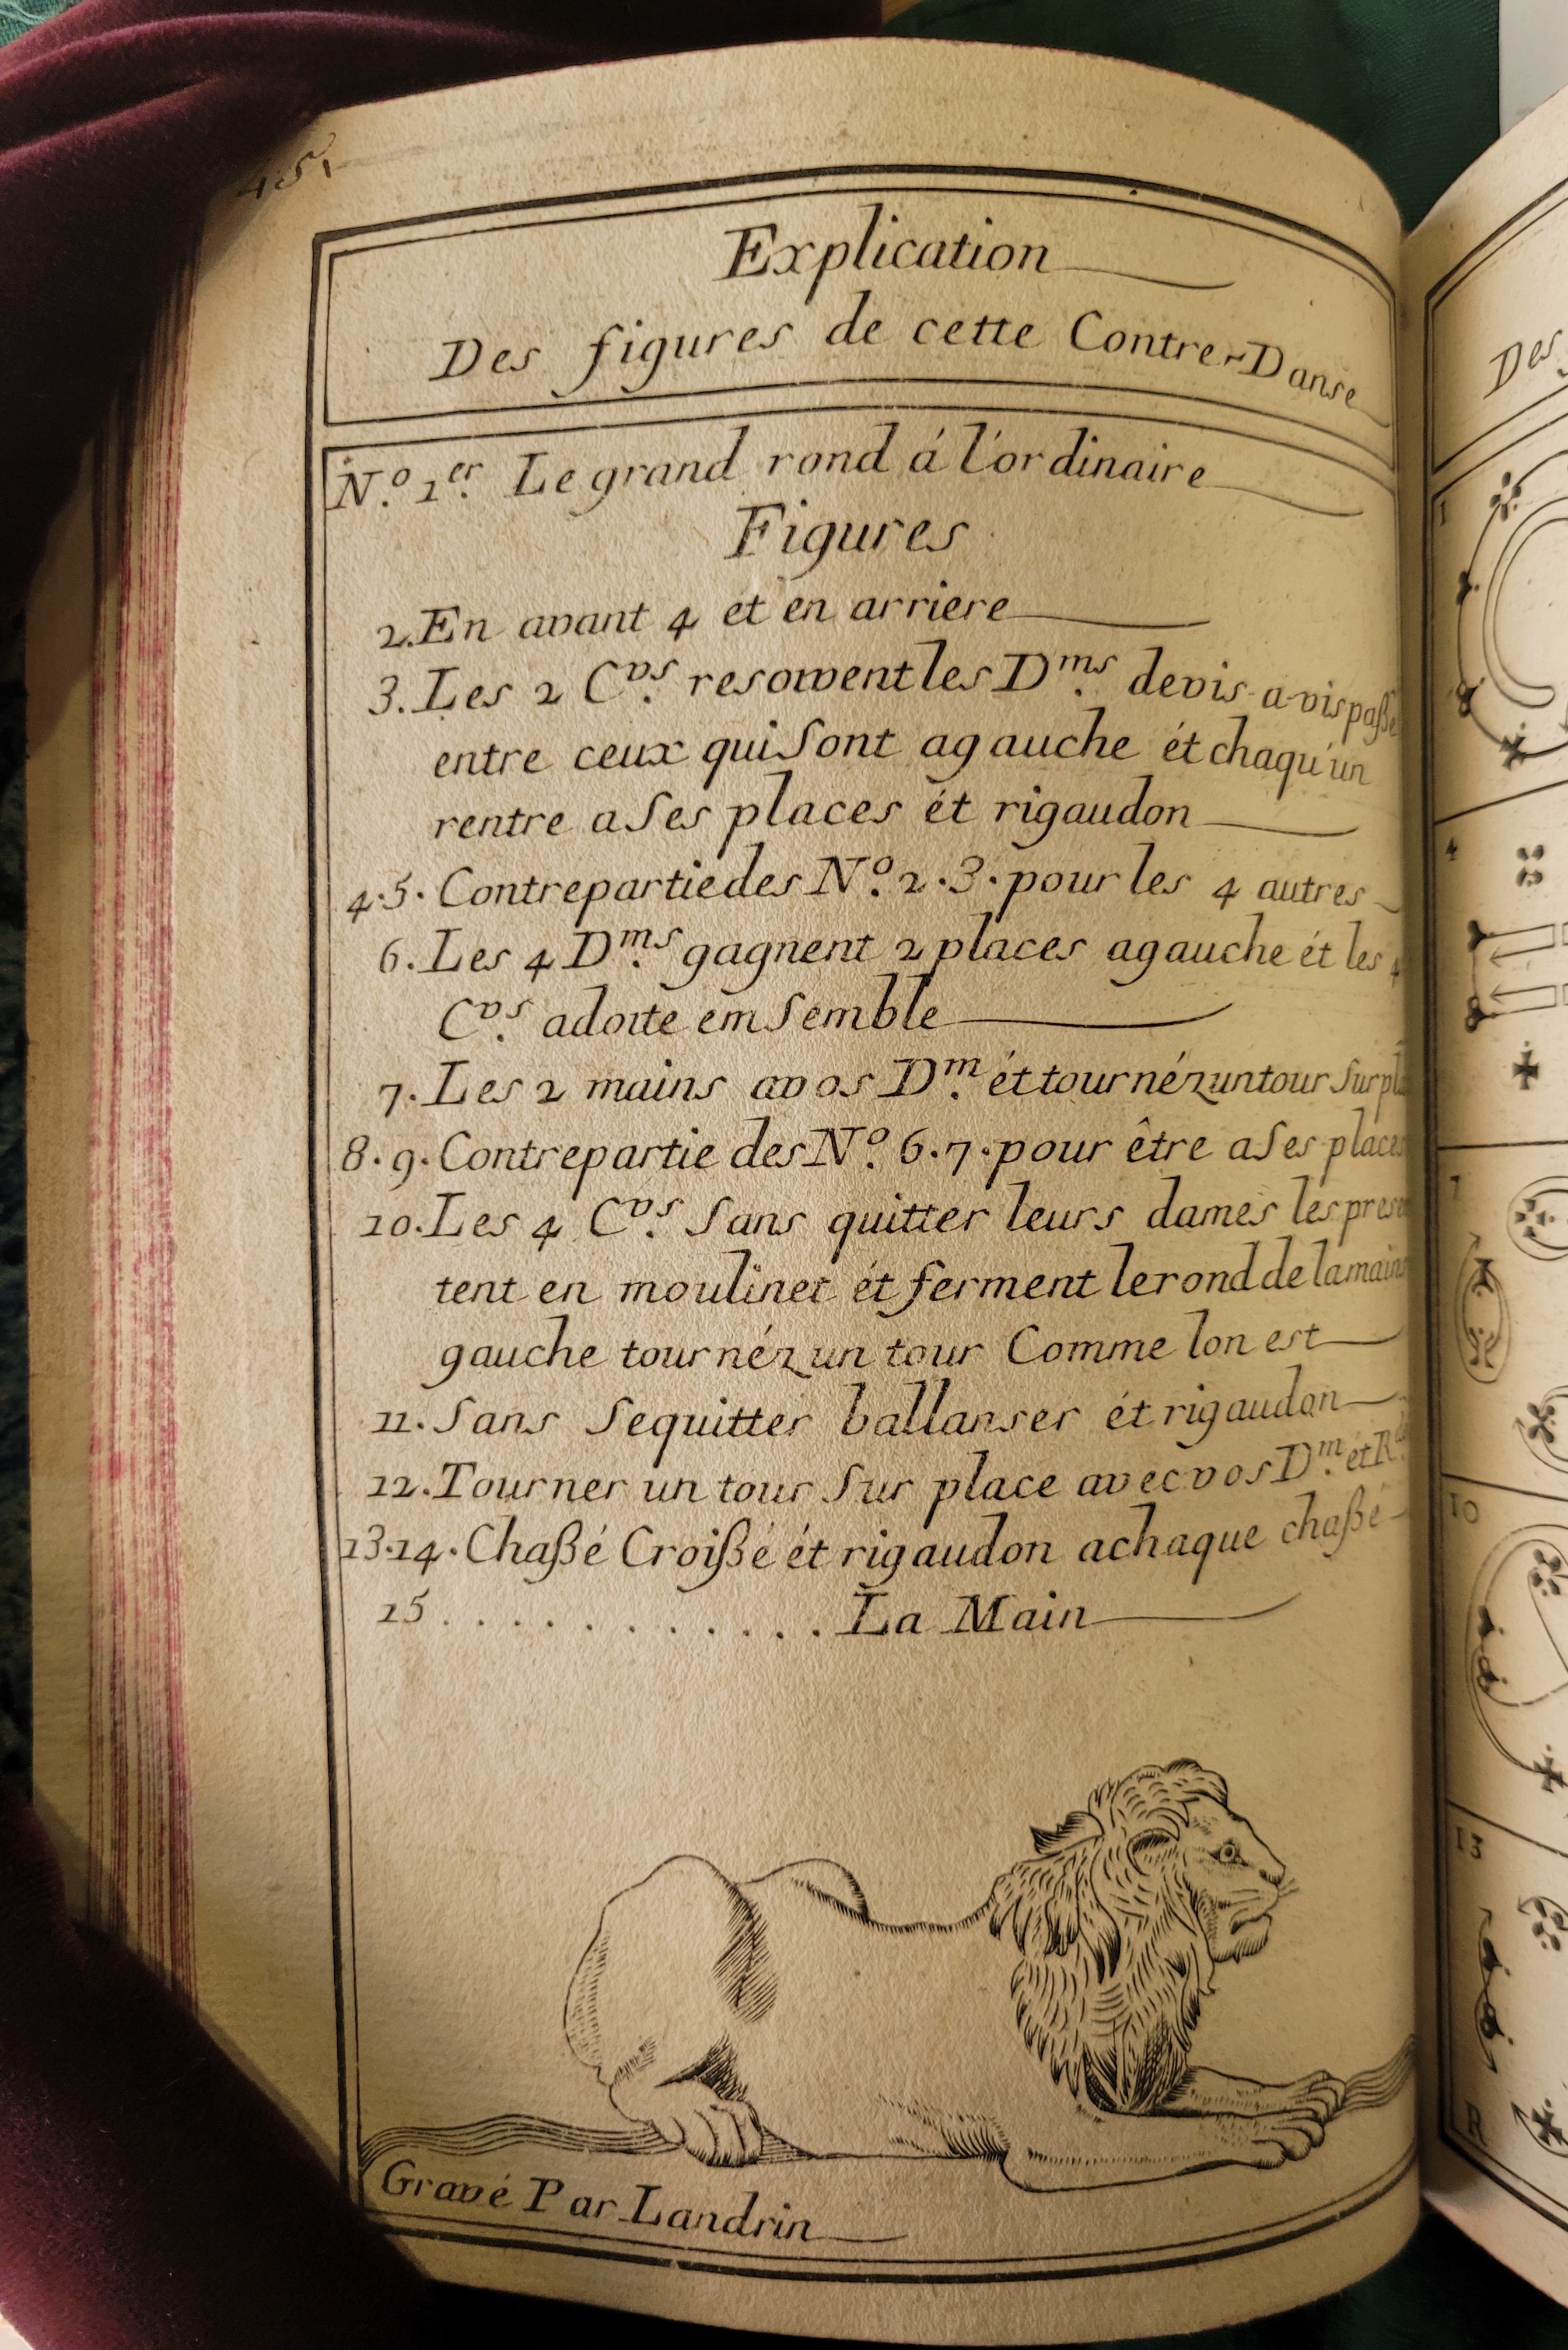 45.
Explication
Des figures de cette Contre-Danse
N.º 1er. Le grand rond á l'ordinaire
Figures
2. En avant 4 et en arriere
3. Les 2 C.vs resoivent les D.ms devis-a-vis paße
entre ceux qui sont agauche ét chaqu'un
rentre a ses places ét rigaudon
4.5. Contrepartie des N.º 2.3. pour les 4 autres
6. Les 4 D.ms gagnent 2 places agauche ét les 4
C.vs adoite emsemble
7. Les 2 mains avos D.m ét tournéz un tour sur pla
8.9. Contrepartie des N.º 6.7. pour être a ses places
10. Les 4 C.vs sans quitter leurs dames les presen
tent en moulinet ét ferment le rond de la main
gauche tournéz un tour Comme lon est
11. Sans se quitter ballanser ét rigaudon
12. Tourner un tour sur place avec vos D.m ét R.
13.14. Chaßé Croißé ét rigaudon achaque chaßé
15 . . . . . . . . . . . . La Main
Gravé Par Landrin
Des
1
4
7
10
13
R